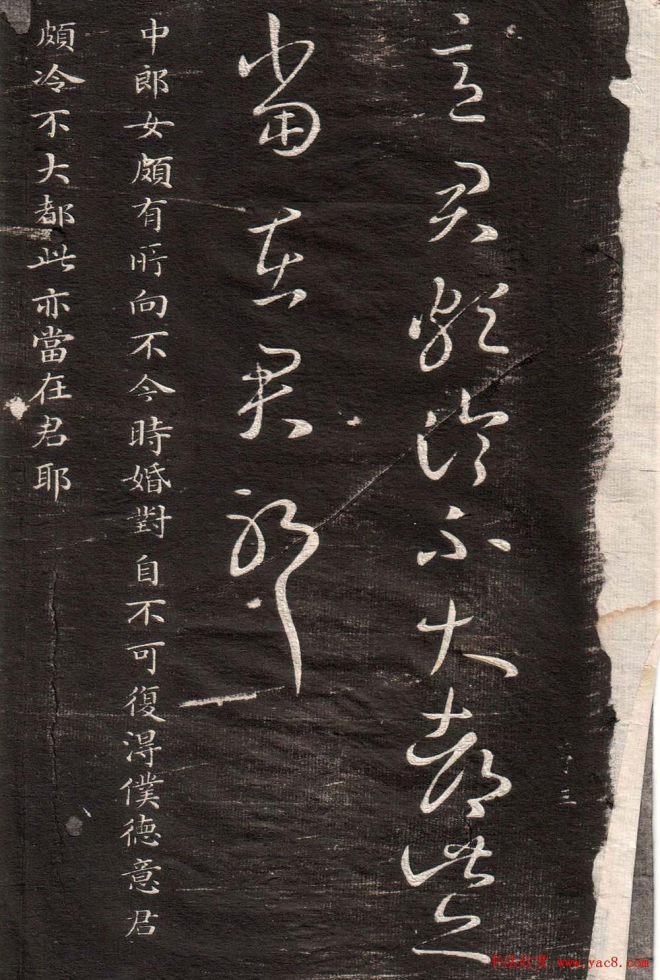 意君頗冷不大都此亦
當在君耶
中郎女頗有所向不今時婚對自不可復得僕德意君
頗冷不大都此亦當在君耶
书法欣赏 www.yac8.com